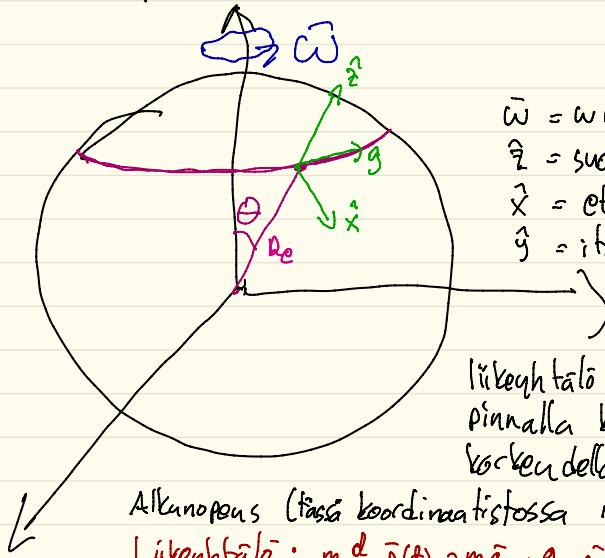 ω̄
ẑ
ω̄ = ω
ŷ
ẑ = suo
x̂
x̂ = et
θ
ŷ = it
Re
liikeyhtälö
pinnalla
korkeudella
Alkunopeus (tässä koordinaatistossa
Liikeyhtälö: